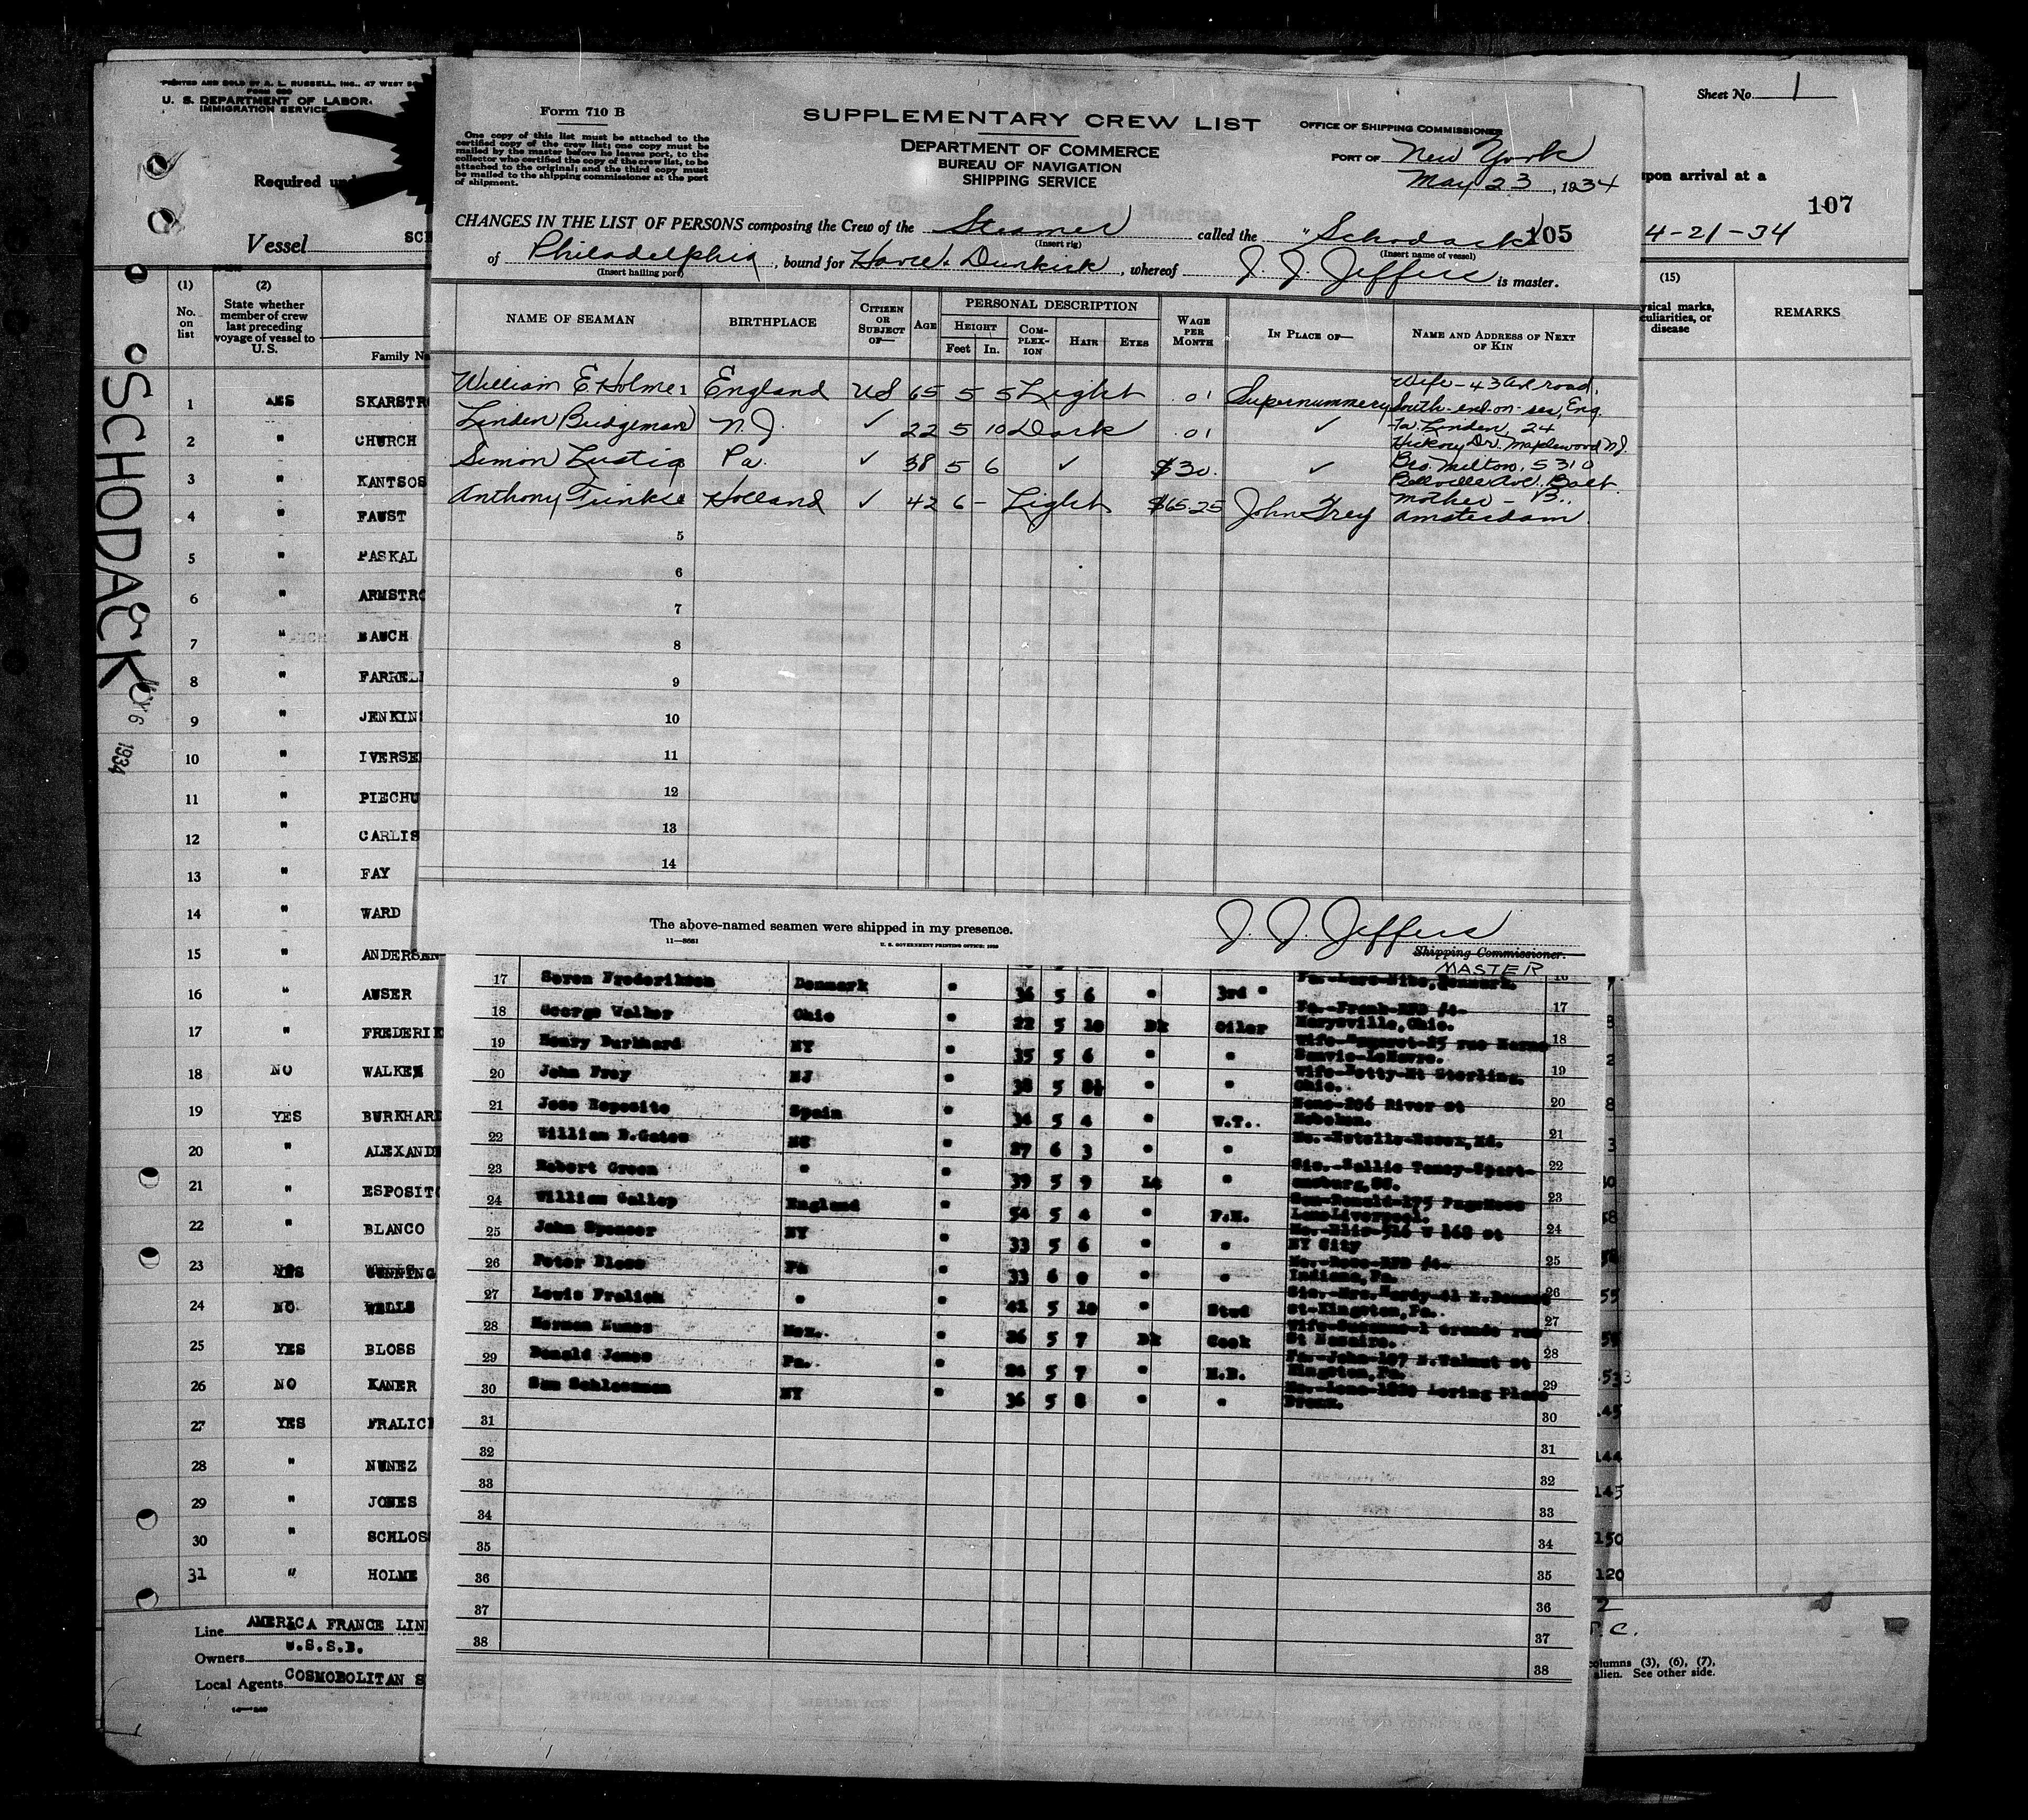 PRINTED AND SOLD BY A. L. RUSSELL, INC., 47 WEST
FORM 680
U. S. DEPARTMENT OF LABOR
IMMIGRATION SERVICE
Required un
Vessel SCH
Sheet No. 1
upon arrival at a
107
4-21-34
SCHODACK
1934
Form 710 B
One copy of this list must be attached to the
certified copy of the crew list; one copy must be
mailed by the master before he leaves port, to the
collector who certified the copy of the crew list, to be
attached to the original; and the third copy must
be mailed to the shipping commissioner at the port
of shipment.
SUPPLEMENTARY CREW LIST
DEPARTMENT OF COMMERCE
BUREAU OF NAVIGATION
SHIPPING SERVICE
OFFICE OF SHIPPING COMMISSIONER
PORT OF New York
May 23, 1934
CHANGES IN THE LIST OF PERSONS composing the Crew of the Steamer called the "Schodack" 105
(Insert rig) (Insert name of vessel)
of Philadelphia, bound for Havre. Dunkirk, whereof J. J. Jeffers is master.
(Insert hailing port)
NAME OF SEAMAN BIRTHPLACE CITIZEN OR SUBJECT OF— AGE PERSONAL DESCRIPTION HEIGHT Feet In. COMPLEXION HAIR EYES WAGE PER MONTH IN PLACE OF— NAME AND ADDRESS OF NEXT OF KIN
William E Holmes England US 65 5 5 Light .01 Supernummery Wife - 43 road, South-end-on-sea, Eng.
Linden Bridgeman N.J. ✓ 22 5 10 Dark .01 ✓ Fa. Linden, 24 Hickory Dr. Maplewood N.J.
Simon Lustig Pa. ✓ 38 5 6 ✓ $30. ✓ Bro. Milton, 5310 Bellville Ave. Balt.
Anthony Trinkle Holland ✓ 42 6 - Light $65.25 John Frey mother - Amsterdam
5
6
7
8
9
10
11
12
13
14
The above-named seamen were shipped in my presence.
11—8681 U. S. GOVERNMENT PRINTING OFFICE: 1930
J. J. Jeffers
Shipping Commissioner.
MASTER
(1) No. on list
(2) State whether member of crew last preceding voyage of vessel to U. S.
Family Na
(15)
ysical marks,
culiarities, or
disease
REMARKS
1 YES SKARSTR
2 " CHURCH
3 " KANTSOS
4 " FAUST
5 " PASKAL
6 " ARMSTRO
7 " BAUCH
8 " FARREL
9 " JENKIN
10 " IVERSE
11 " PIECHU
12 " CARLIS
13 " FAY
14 " WARD
15 " ANDERSEN
16 " AUSER
17 " FREDERIK
18 NO WALKER
19 YES BURKHARD
20 " ALEXANDE
21 " ESPOSITO
22 " BLANCO
23 YES GUNNING
24 NO WELLS
25 YES BLOSS
26 NO KANER
27 YES FRALICK
28 " NUNEZ
29 " JONES
30 " SCHLOS
31 " HOLME
17 Soren Frederiksen Denmark " 36 5 6 " 3rd "
18 George Walker Ohio " 22 5 10 Dk Oiler Fa.-Frank-RFD #4- Marysville, Ohio. 17
19 Henry Burkhard NY " 35 5 6 " " 18
20 John Frey NJ " 38 5 8½ " " 19
21 Jose Esposito Spain " 34 5 4 " W.T. None-206 River st Hoboken. 20
22 William D.Gates " 27 6 3 " " 21
23 Robert Green " " 39 5 9 Lt " 22
24 William Gallop England " 54 5 4 " F.M. 23
25 John Spencer NY " 33 5 6 " " NY City 24
26 Peter Bloss Pa " 33 6 0 " " Mo.-Rose-RFD #4- Indiana, Pa. 25
27 Lewis Fralick " " 41 5 10 " Stwd st-Kingston, Pa. 26
28 Herman Nunez Mex. " 26 5 7 Dk Cook 27
29 Donald Jones Pa. " 24 5 7 " M.B. Fa.-John-107 N.Walnut st Kingston, Pa. 28
30 Sam Schlossman NY " 36 5 8 " " Mo.-Lena-1830 Loring Place Bronx. 29
31 30
32 31
33 32
34 33
35 34
36 35
37 36
38 37
38
533
145
144
145
150
120
Line AMERICA FRANCE LIN
Owners U.S.S.B.
Local Agents COSMOPOLITAN S
columns (3), (6), (7),
alien. See other side.